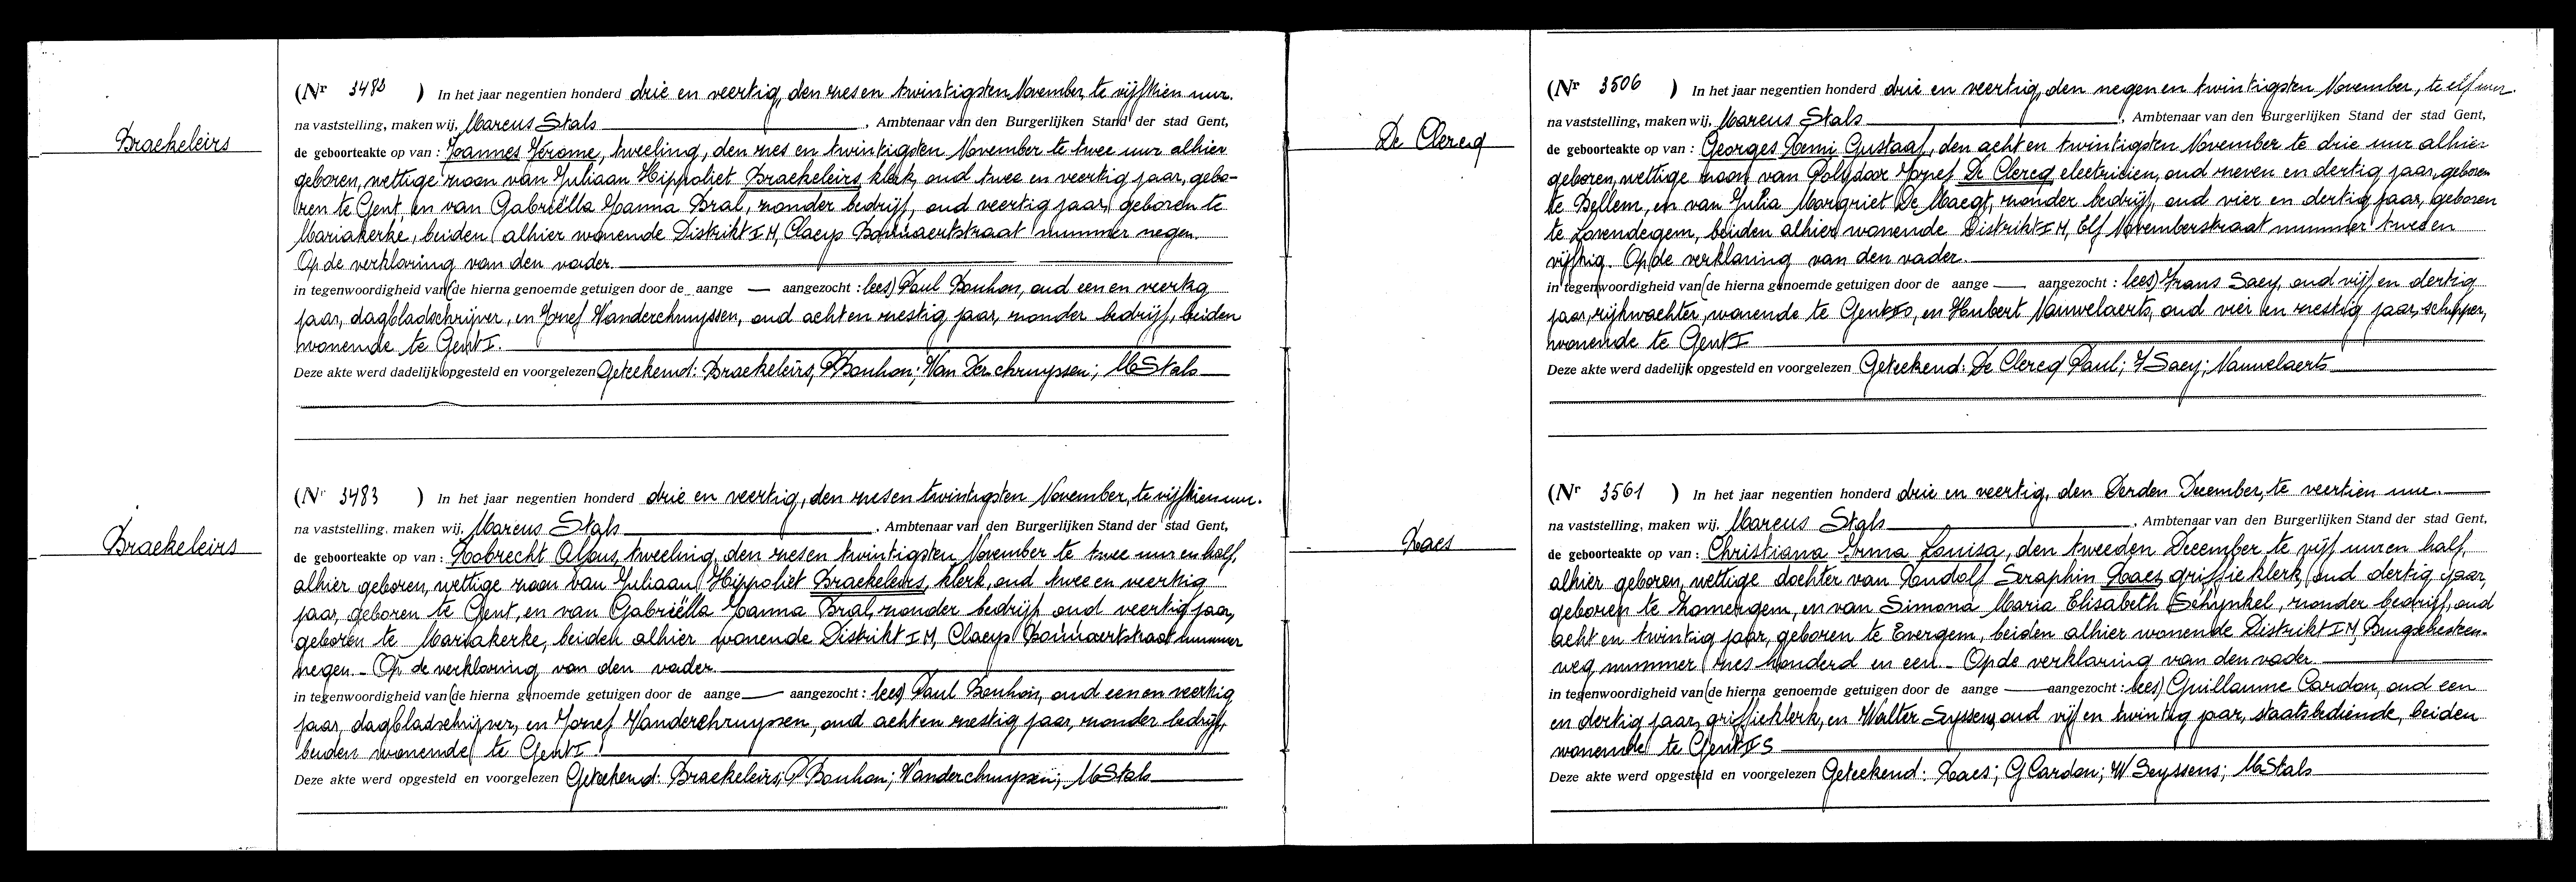 Braekeleirs
(Nr 3482 ) In het jaar negentien honderd drie en veertig, den zes en twintigsten November, te vijftien uur.
na vaststelling, maken wij, Marcus Stals , Ambtenaar van den Burgerlijken Stand der stad Gent,
de geboorteakte op van : Joannes Jérome, tweeling, den zes en twintigsten November te twee uur alhier
geboren, wettige zoon van Juliaan Hippoliet Braekeleirs, klerk, oud twee en veertig jaar, gebo-
ren te Gent, en van Gabriëlla Joanna Bral, zonder bedrijf, oud veertig jaar, geboren te
Mariakerke, beiden alhier wonende Distrikt I M, Claeys Bouuaertstraat nummer negen.
Op de verklaring van den vader.
in tegenwoordigheid van (de hierna genoemde getuigen door de aange — aangezocht : lees) Paul Bouhon, oud een en veertig
jaar, dagbladschrijver, en Jozef Vanderchruyssen, oud acht en zestig jaar, zonder bedrijf, beiden
wonende te Gent I.
Deze akte werd dadelijk opgesteld en voorgelezen Geteekend: Braekeleirs; P Bouhon; Van Der chruyssen; M Stals
Braekeleirs
(Nr 3483 ) In het jaar negentien honderd drie en veertig, den zes en twintigsten November, te vijftien uur.
na vaststelling, maken wij, Marcus Stals , Ambtenaar van den Burgerlijken Stand der stad Gent,
de geboorteakte op van : Robrecht Alfons, tweeling, den zes en twintigsten November te twee uur en half,
alhier geboren, wettige zoon van Juliaan Hippoliet Braekeleirs, klerk, oud twee en veertig
jaar, geboren te Gent, en van Gabriëlla Joanna Bral, zonder bedrijf, oud veertig jaar,
geboren te Mariakerke, beiden alhier wonende Distrikt I M, Claeys Bouuaertstraat nummer
negen. - Op de verklaring van den vader.
in tegenwoordigheid van (de hierna genoemde getuigen door de aange — aangezocht : lees) Paul Bouhon, oud een en veertig
jaar, dagbladschrijver, en Jozef Vanderchruyssen, oud acht en zestig jaar, zonder bedrijf,
beiden wonende te Gent I.
Deze akte werd opgesteld en voorgelezen Geteekend: Braekeleirs; P Bouhon; Vanderchruyssen; M Stals
De Clercq
(Nr 3506 ) In het jaar negentien honderd drie en veertig, den negen en twintigsten November, te elf uur.
na vaststelling, maken wij, Marcus Stals , Ambtenaar van den Burgerlijken Stand der stad Gent,
de geboorteakte op van : Georges Remi Gustaaf, den acht en twintigsten November te drie uur alhier
geboren, wettige zoon van Polydoor Jozef De Clercq electricien, oud zeven en dertig jaar, geboren
te Bellem, en van Julia Margriet De Maegt, zonder bedrijf, oud vier en dertig jaar, geboren
te Lovendegem, beiden alhier wonende Distrikt I M, Elf Novemberstraat nummer twee en
vijftig. Op de verklaring van den vader.
in tegenwoordigheid van (de hierna genoemde getuigen door de aange — aangezocht : lees) Frans Saey, oud vijf en dertig
jaar, rijkwachter, wonende te Gent, en Hubert Nauwelaerts, oud vier en zestig jaar, schipper,
wonende te Gent I
Deze akte werd dadelijk opgesteld en voorgelezen Geteekend: De Clercq Paul; F Saey; Nauwelaerts
Raes
(Nr 3561 ) In het jaar negentien honderd drie en veertig, den Derden December, te veertien uur.
na vaststelling, maken wij, Marcus Stals , Ambtenaar van den Burgerlijken Stand der stad Gent,
de geboorteakte op van : Christiana Irma Louisa, den tweeden December te vijf uur en half,
alhier geboren, wettige dochter van Rudolf Seraphin Raes griffieklerk, oud dertig jaar,
geboren te Zomergem, en van Simona Maria Elisabeth Schynkel, zonder bedrijf, oud
acht en twintig jaar, geboren te Evergem, beiden alhier wonende Distrikt I M Brugschesteen-
weg nummer zes honderd en een. - Op de verklaring van den vader.
in tegenwoordigheid van (de hierna genoemde getuigen door de aange — aangezocht : lees) Guillaume Cardon, oud een
en dertig jaar, griffieklerk, en Walter Seyssens, oud vijf en twintig jaar, staatsbediende, beiden
wonende te Gent I S
Deze akte werd opgesteld en voorgelezen Geteekend: Raes; G Cardon; W Seyssens; M Stals